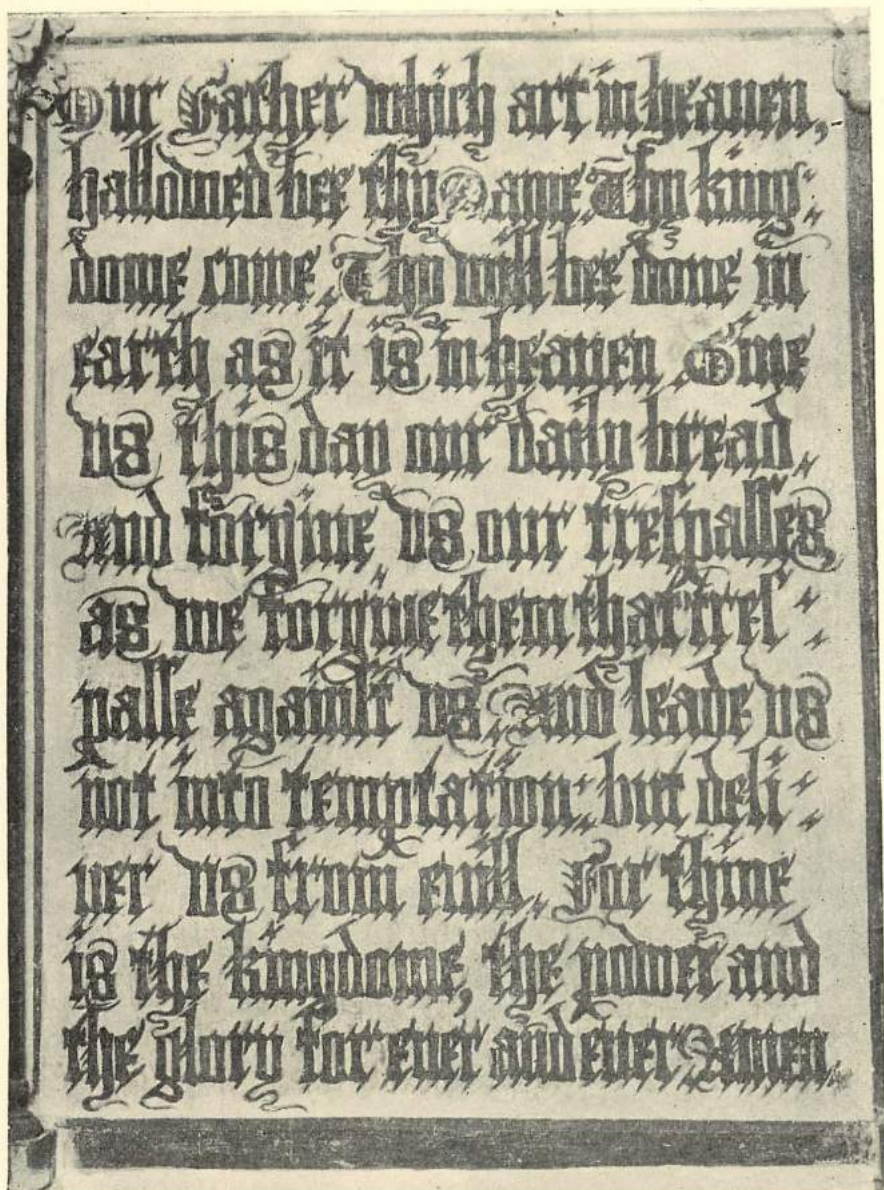 Our Father which art in heauen,
hallowed bee thy Name. Thy king:
dome come. Thy will bee done in
earth as it is in heauen. Giue
vs this day our daily bread.
And forgiue vs our treſpaſſes,
as we forgiue them that treſ:
paſſe againſt vs. And leade vs
not into temptation: but deli:
uer vs from euill. For thine
is the kingdome, the power and
the glory for euer and euer Amen.